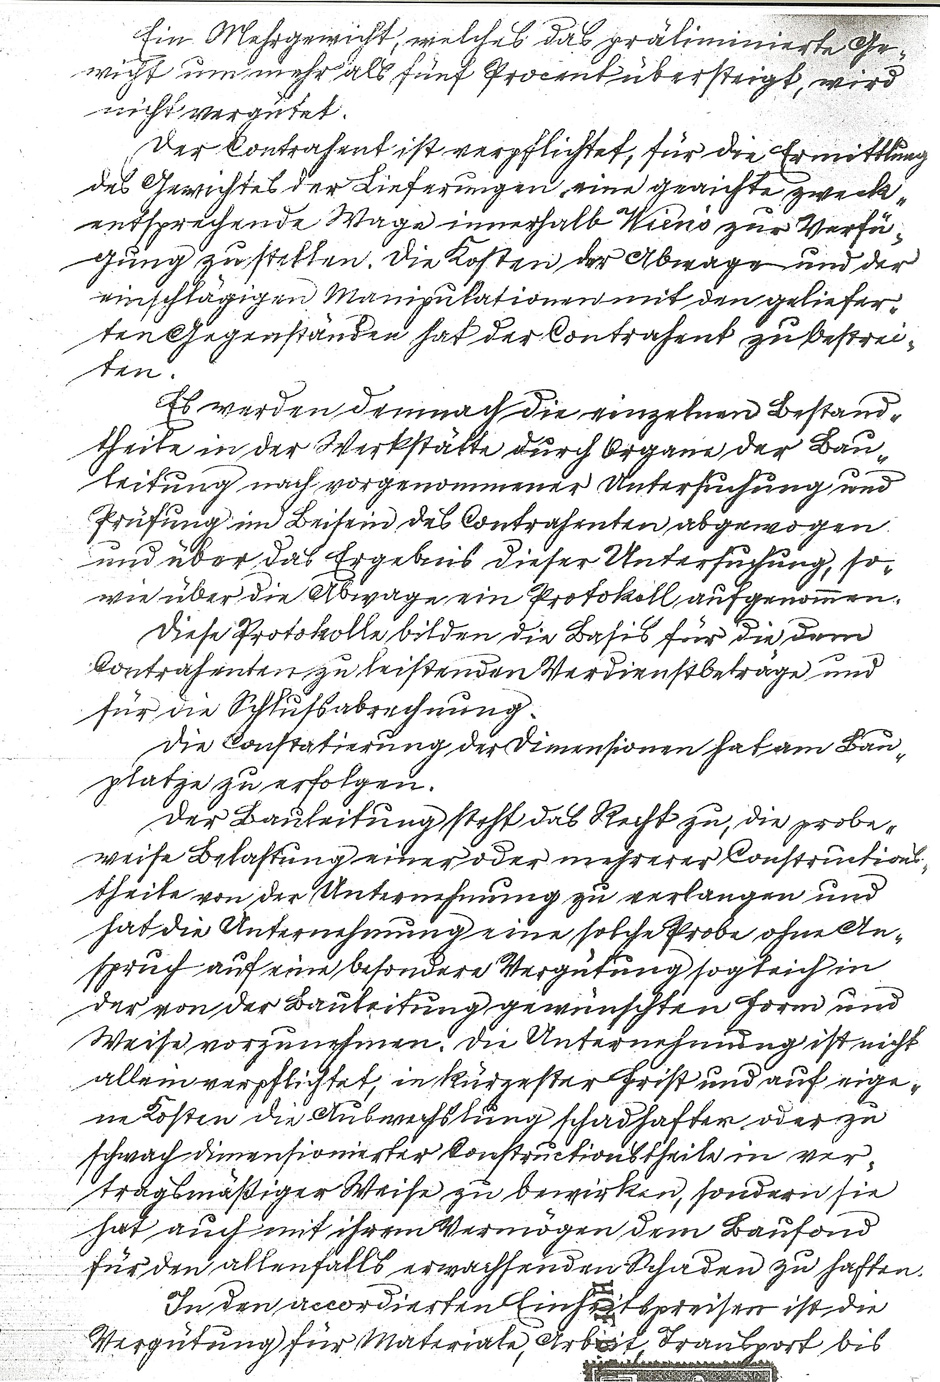 Ein Mehrgewicht, welches das präliminierte Ge-
wicht um mehr als fünf Procent übersteigt, wird
nicht vergütet.
Der Contrahent ist verpflichtet, für die Ermittlung
des Gewichtes der Lieferungen eine geaichte zweck-
entsprechende Wage innerhalb Wiens zur Verfü-
gung zu stellen. Die Kosten der Abwage und der
einschlägigen Manipulationen mit den geliefer-
ten Gegenständen hat der Contrahent zu bestrei-
ten.
Es werden demnach die einzelnen Bestand-
theile in der Werkstätte durch Organe der Bau-
leitung nach vorgenommener Untersuchung und
Prüfung im Beisein des Contrahenten abgewogen
und über das Ergebnis dieser Untersuchung, so-
wie über die Abwage ein Protokoll aufgenommen.
Diese Protokolle bilden die Basis für die dem
Contrahenten zu leistenden Verdienstbeträge und
für die Schlussabrechnung.
Die Constatierung der Dimensionen hat am Bau-
platze zu erfolgen.
Der Bauleitung steht das Recht zu, die probe-
weise Belastung einer oder mehrerer Constructions-
theile von der Unternehmung zu verlangen und
hat die Unternehmung eine solche Probe ohne An-
spruch auf eine besondere Vergütung sogleich in
der von der Bauleitung gewünschten Form und
Weise vorzunehmen. Die Unternehmung ist nicht
allein verpflichtet, in kürzester Frist und auf eige-
ne Kosten die Auswechslung schadhafter oder zu
schwach dimensionierter Constructionstheile in ver-
tragsmäßiger Weise zu bewirken, sondern sie
hat auch mit ihrem Vermögen dem Baufond
für den allenfalls erwachsenden Schaden zu haften.
In den accordierten Einheitspreisen ist die
Vergütung für Materiale, Arbeit, Transport bis